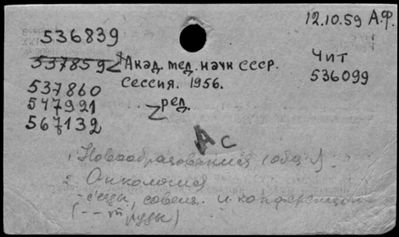 12.10.59 А.Ф.
536839
537859 Акад. мед. наук СССР.
Сессия. 1956.
Чит
536099
537860
547921
567132
ред.
Ас
1. Новообразования (общ.).
2. Онкология
- съезды, совещ. и конференции
(-- труды)